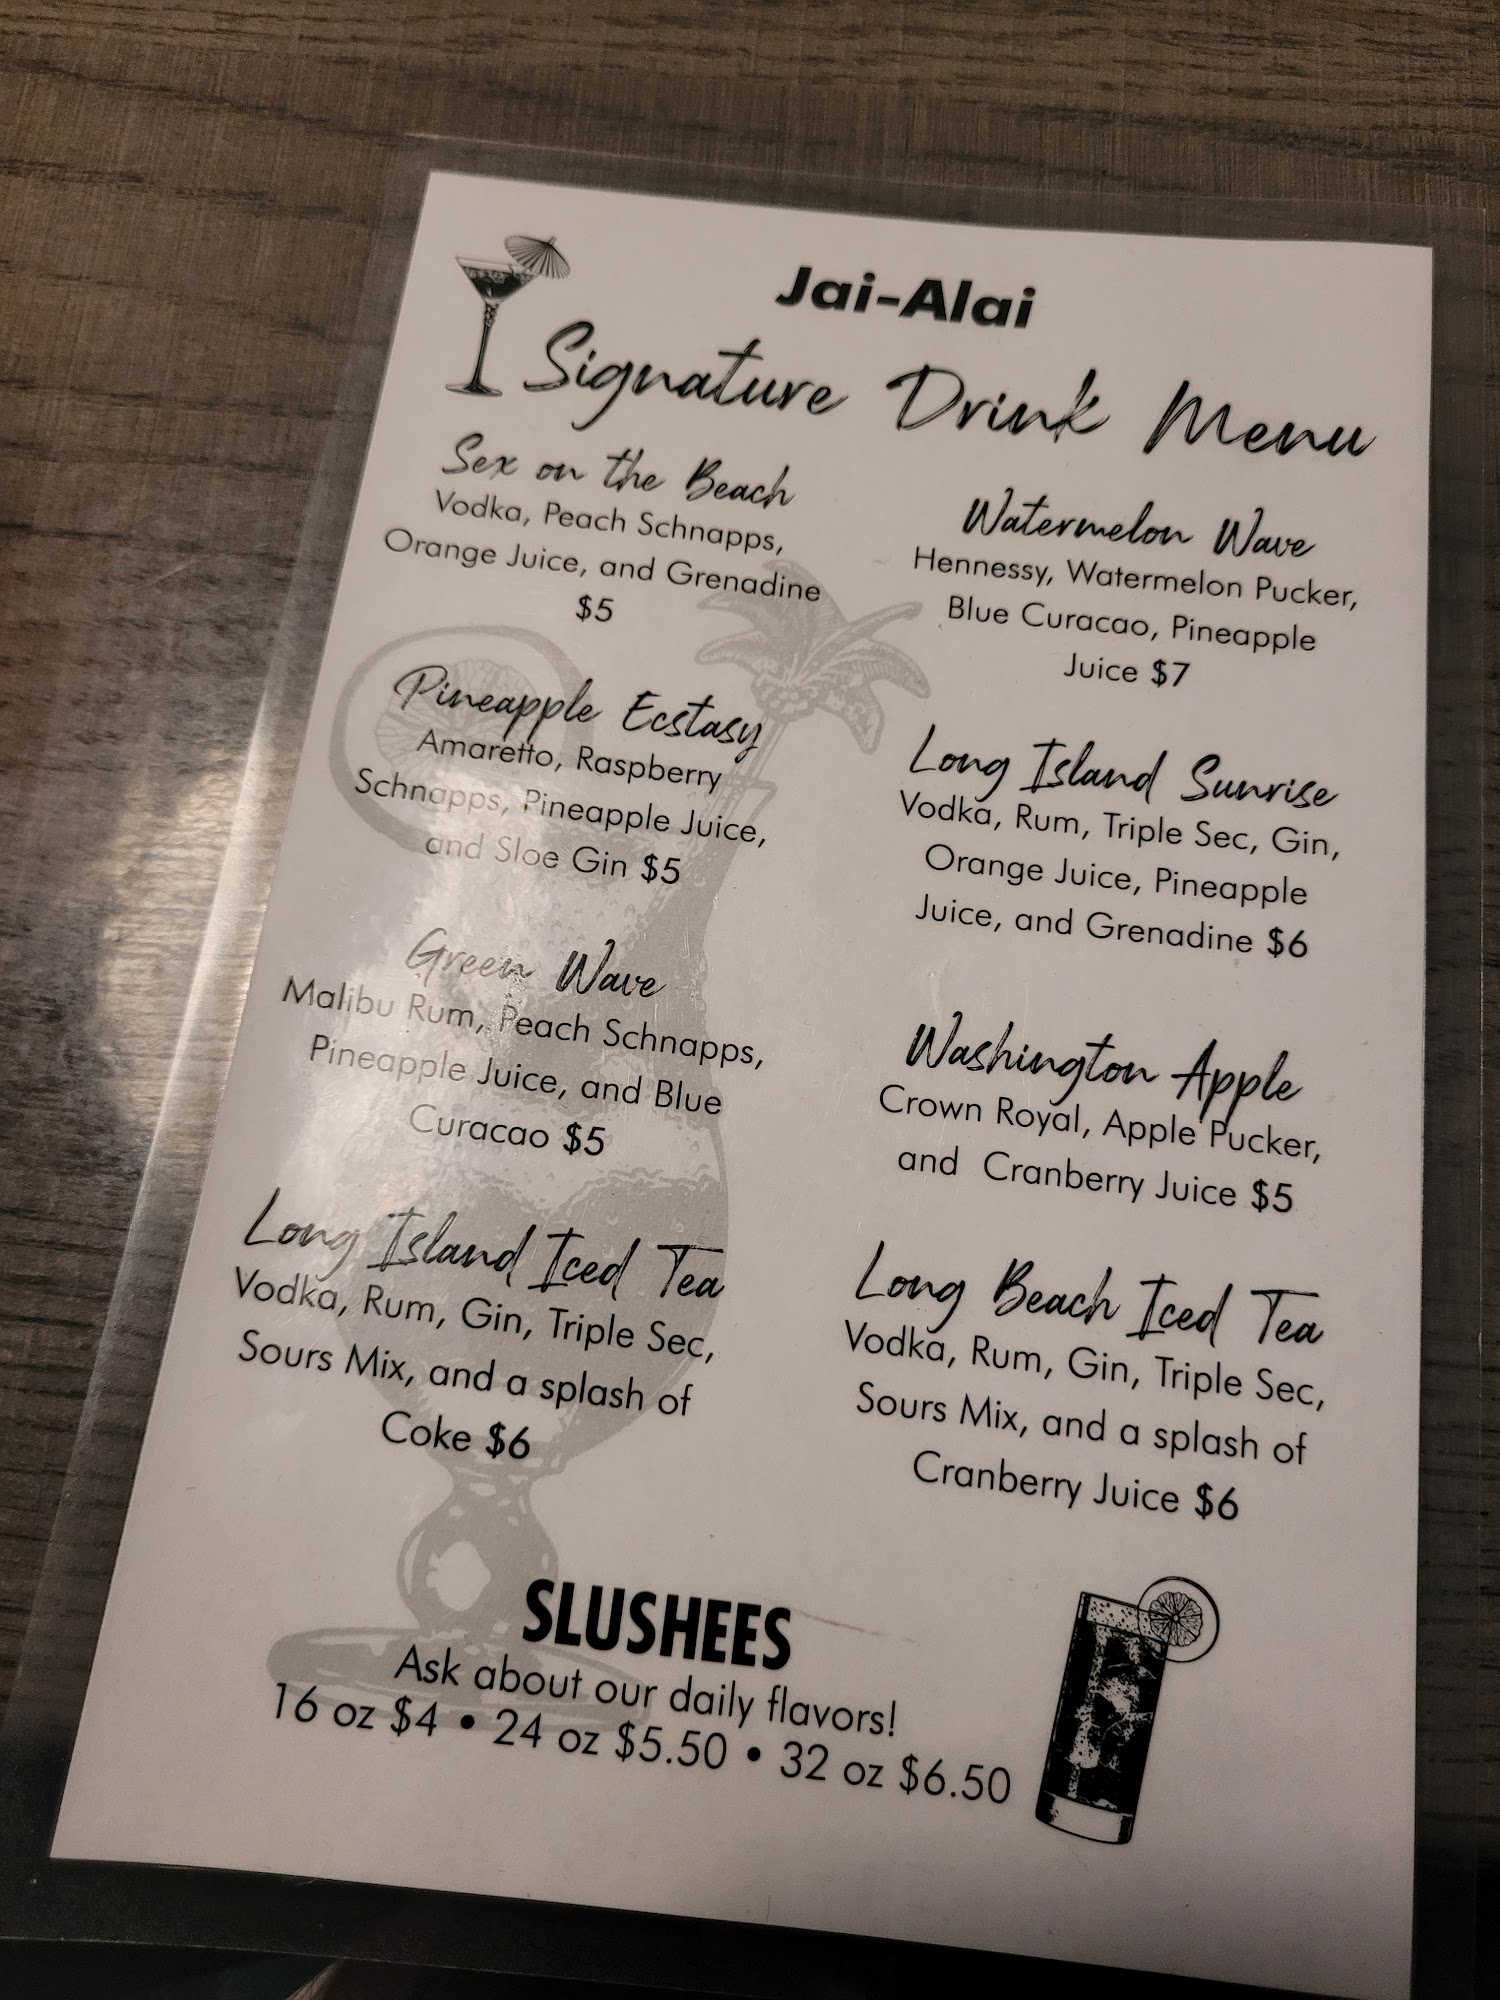 Jai-Alai
Signature Drink Menu
Sex on the Beach
Vodka, Peach Schnapps,
Orange Juice, and Grenadine
$5
Pineapple Ecstasy
Amaretto, Raspberry
Schnapps, Pineapple Juice,
and Sloe Gin $5
Green Wave
Malibu Rum, Peach Schnapps,
Pineapple Juice, and Blue
Curacao $5
Long Island Iced Tea
Vodka, Rum, Gin, Triple Sec,
Sours Mix, and a splash of
Coke $6
Watermelon Wave
Hennessy, Watermelon Pucker,
Blue Curacao, Pineapple
Juice $7
Long Island Sunrise
Vodka, Rum, Triple Sec, Gin,
Orange Juice, Pineapple
Juice, and Grenadine $6
Washington Apple
Crown Royal, Apple Pucker,
and Cranberry Juice $5
Long Beach Iced Tea
Vodka, Rum, Gin, Triple Sec,
Sours Mix, and a splash of
Cranberry Juice $6
SLUSHEES
Ask about our daily flavors!
16 oz $4 • 24 oz $5.50 • 32 oz $6.50